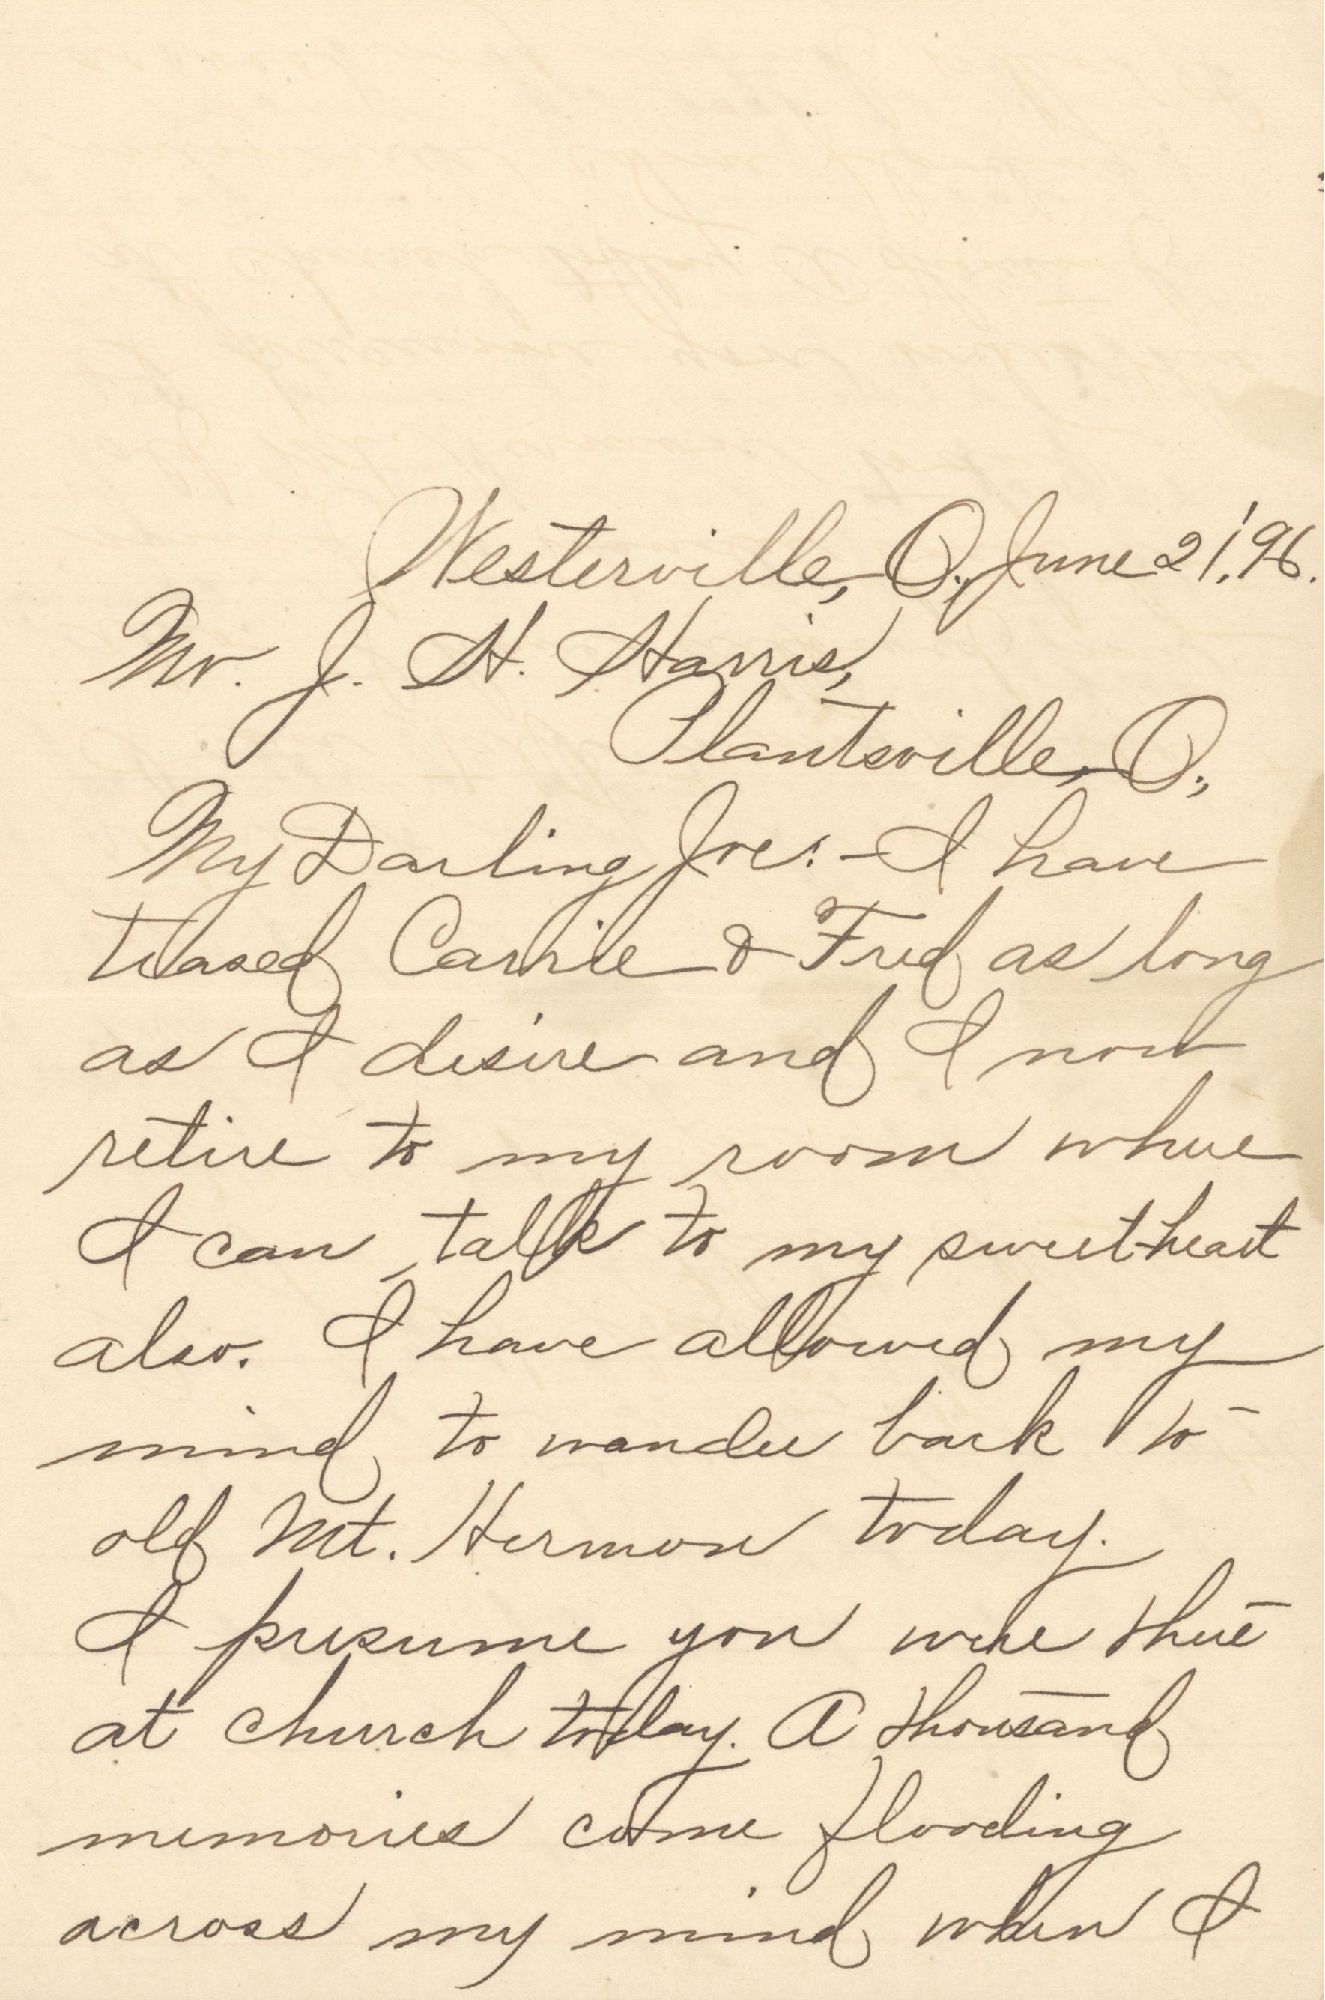 Westerville, O., June 21, '96.
Mr. J. H. Harris,
Plantsville, O.,
My Darling Joe:- I have
teased Carrie & Fred as long
as I desire and I now
retire to my room where
I can talk to my sweet-heart
also. I have allowed my
mind to wander back to
old Mt. Hermon today.
I presume you were there
at church today. A thousand
memories come flooding
across my mind when I